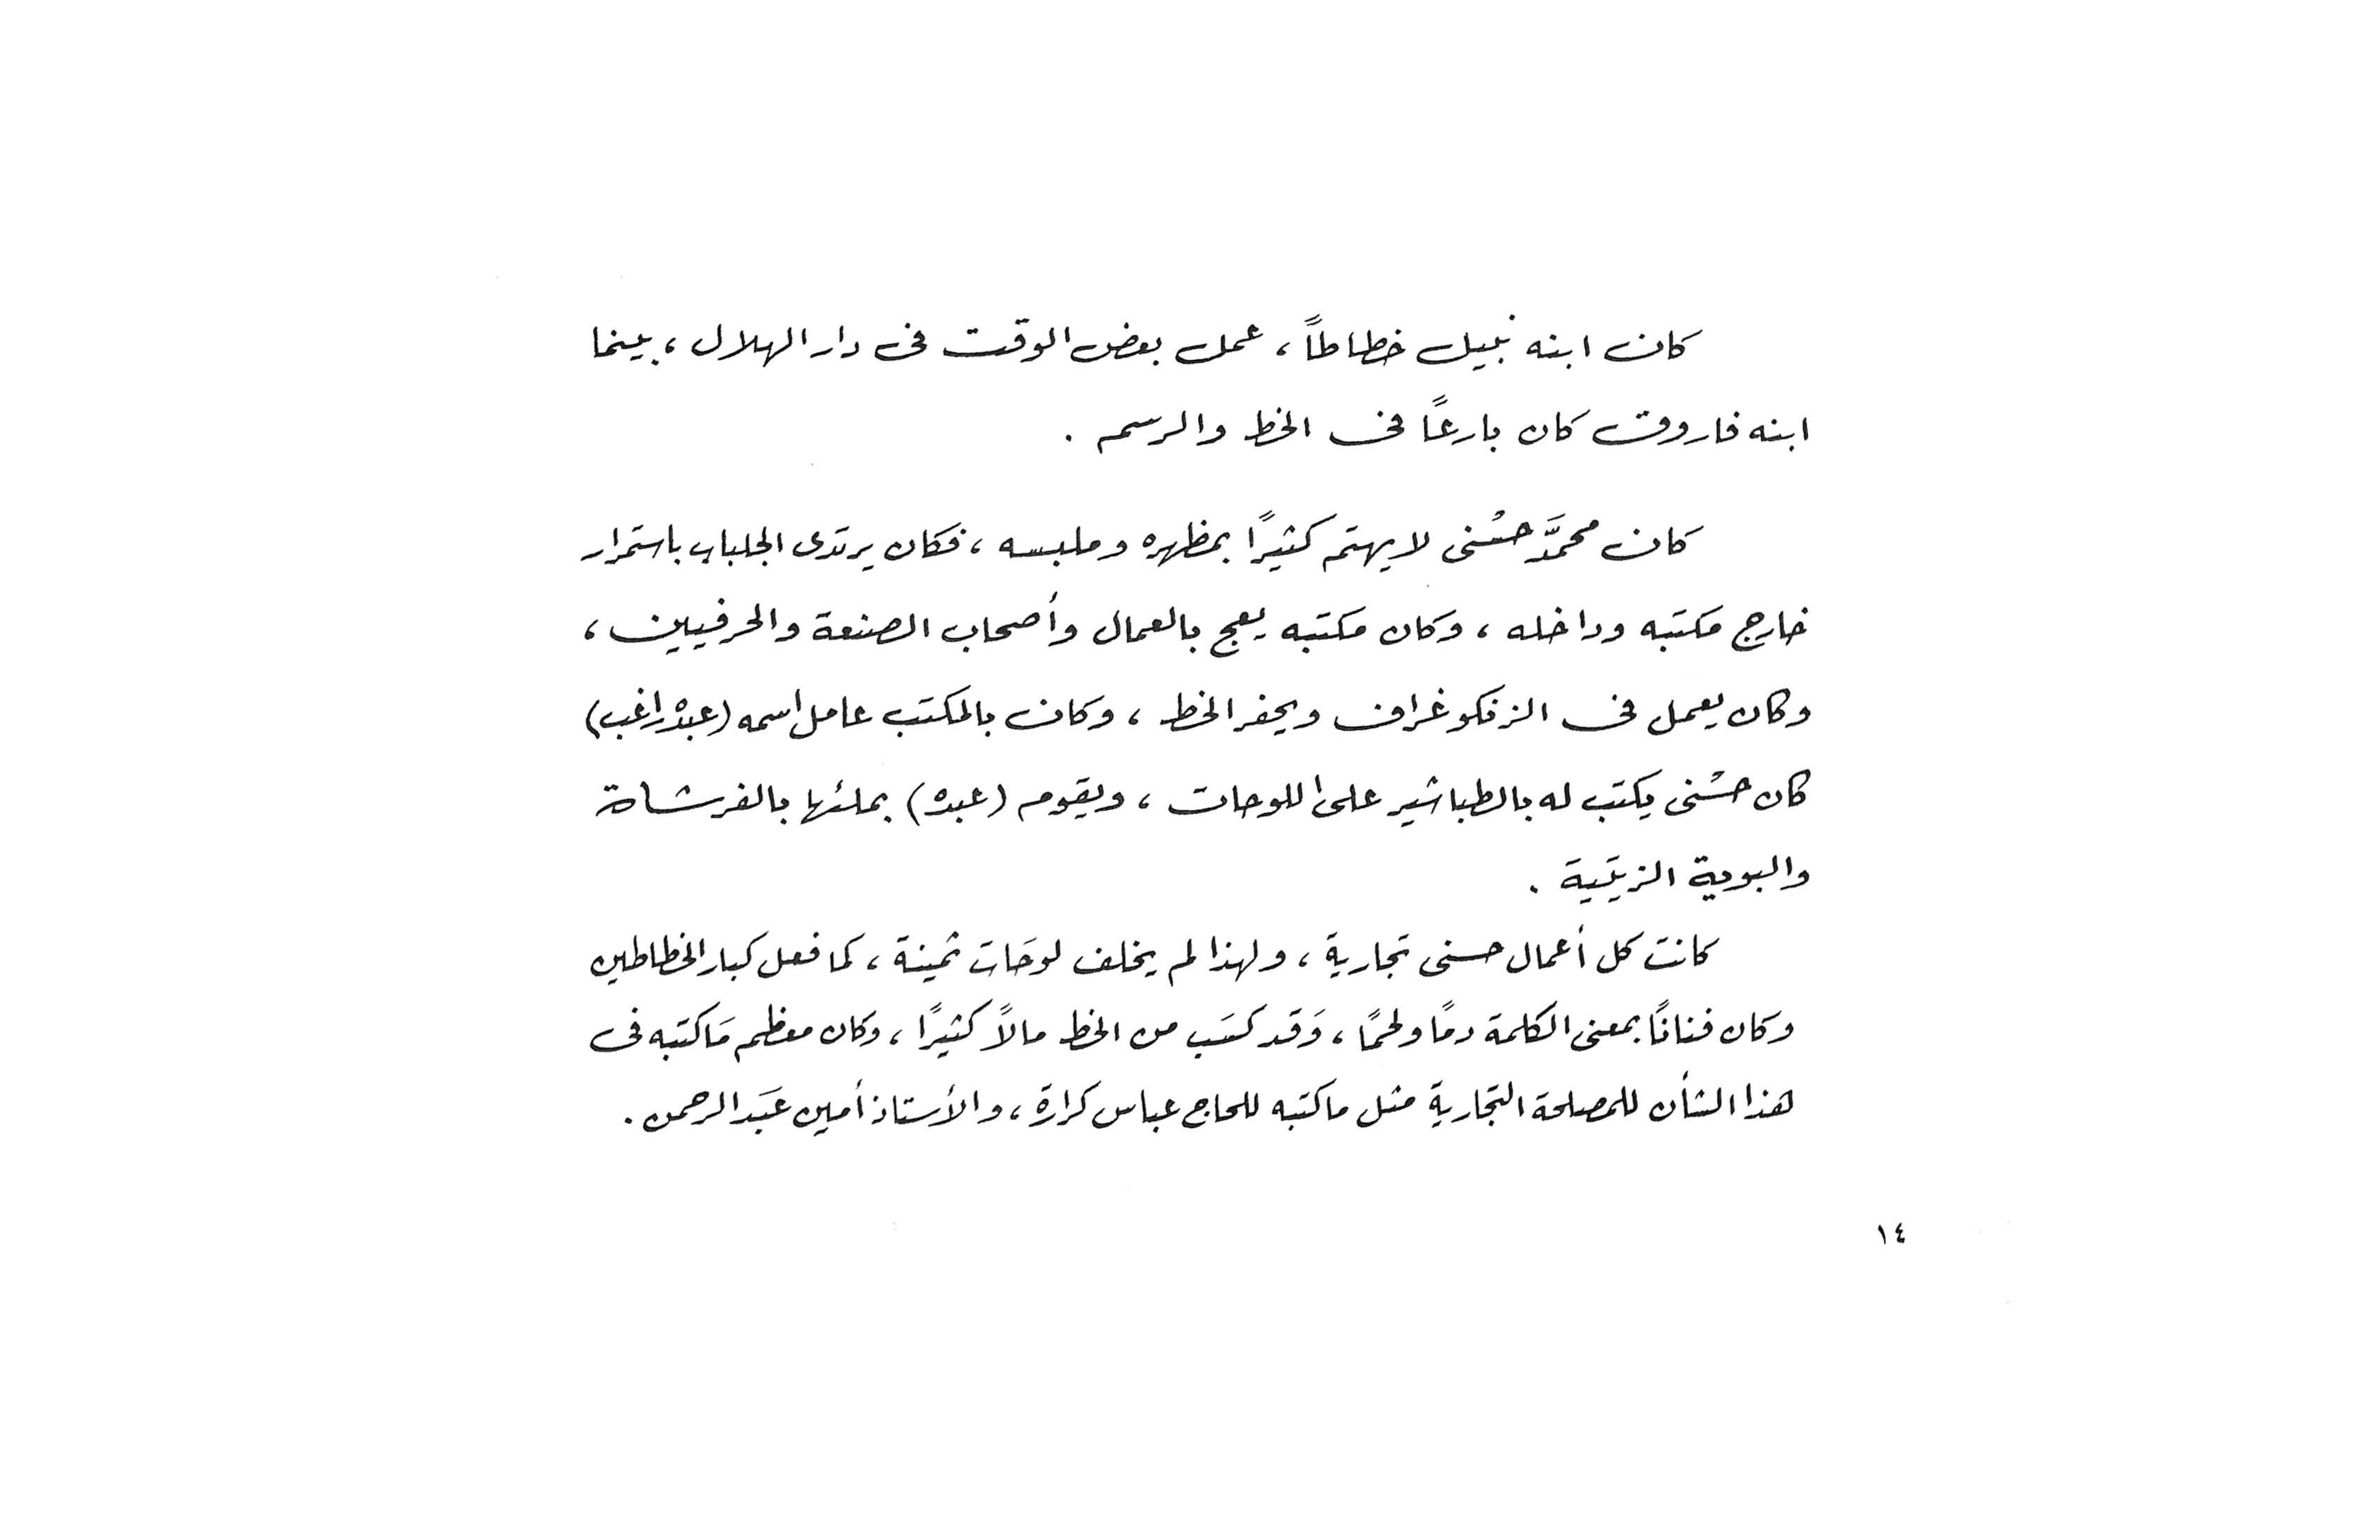 كان ابنه نبيل خطاطاً ، عمل بعض الوقت فى دار الهلال ، بينما
ابنه فاروق كان بارعًا فى الخط والرسم .
كان محمَّد حسْنى لا يهتم كثيرًا بمظهره وملبسه ، فكان يرتدى الجلباب باستمرار
خارج مكتبه وداخله ، وكان مكتبه يعج بالعمال وأصحاب الصنعة والحرفيين ،
وكان يعمل فى الزنكوغراف ويحفر الخط ، وكان بالمكتب عامل اسمه (عبدْه راغب)
كان حسْنى يكتب له بالطباشير على اللوحات ، ويقوم (عبده) بملئها بالفرشاة
والبوية الزيتية .
كانت كل أعمال حسنى تجارية ، ولهذا لم يخلف لوحَات ثمينة ، كما فعل كبار الخطاطين
وكان فنانًا بمعنى الكلمة دمًا ولحمًا ، وَقد كسَب من الخط مالاً كثيرًا ، وكان معظم مَا كتبه فى
هذا الشأن للمصلحة التجارية مثل ما كتبه للحاج عباس كرارة ، والأستاذ أمين عَبد الرحمن .
١٤